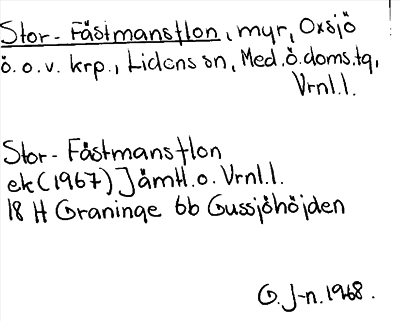 Stor-Fästmansflon, myr, Oxsjö
ö.o.v. krp., Lidens sn, Med.ö.doms.tg,
Vrnl.l.
Stor-Fästmansflon
ek (1967) Jämtl.o. Vrnl.l.
18 H Graninge 6b Gussjöhöjden
G. J-n. 1968.